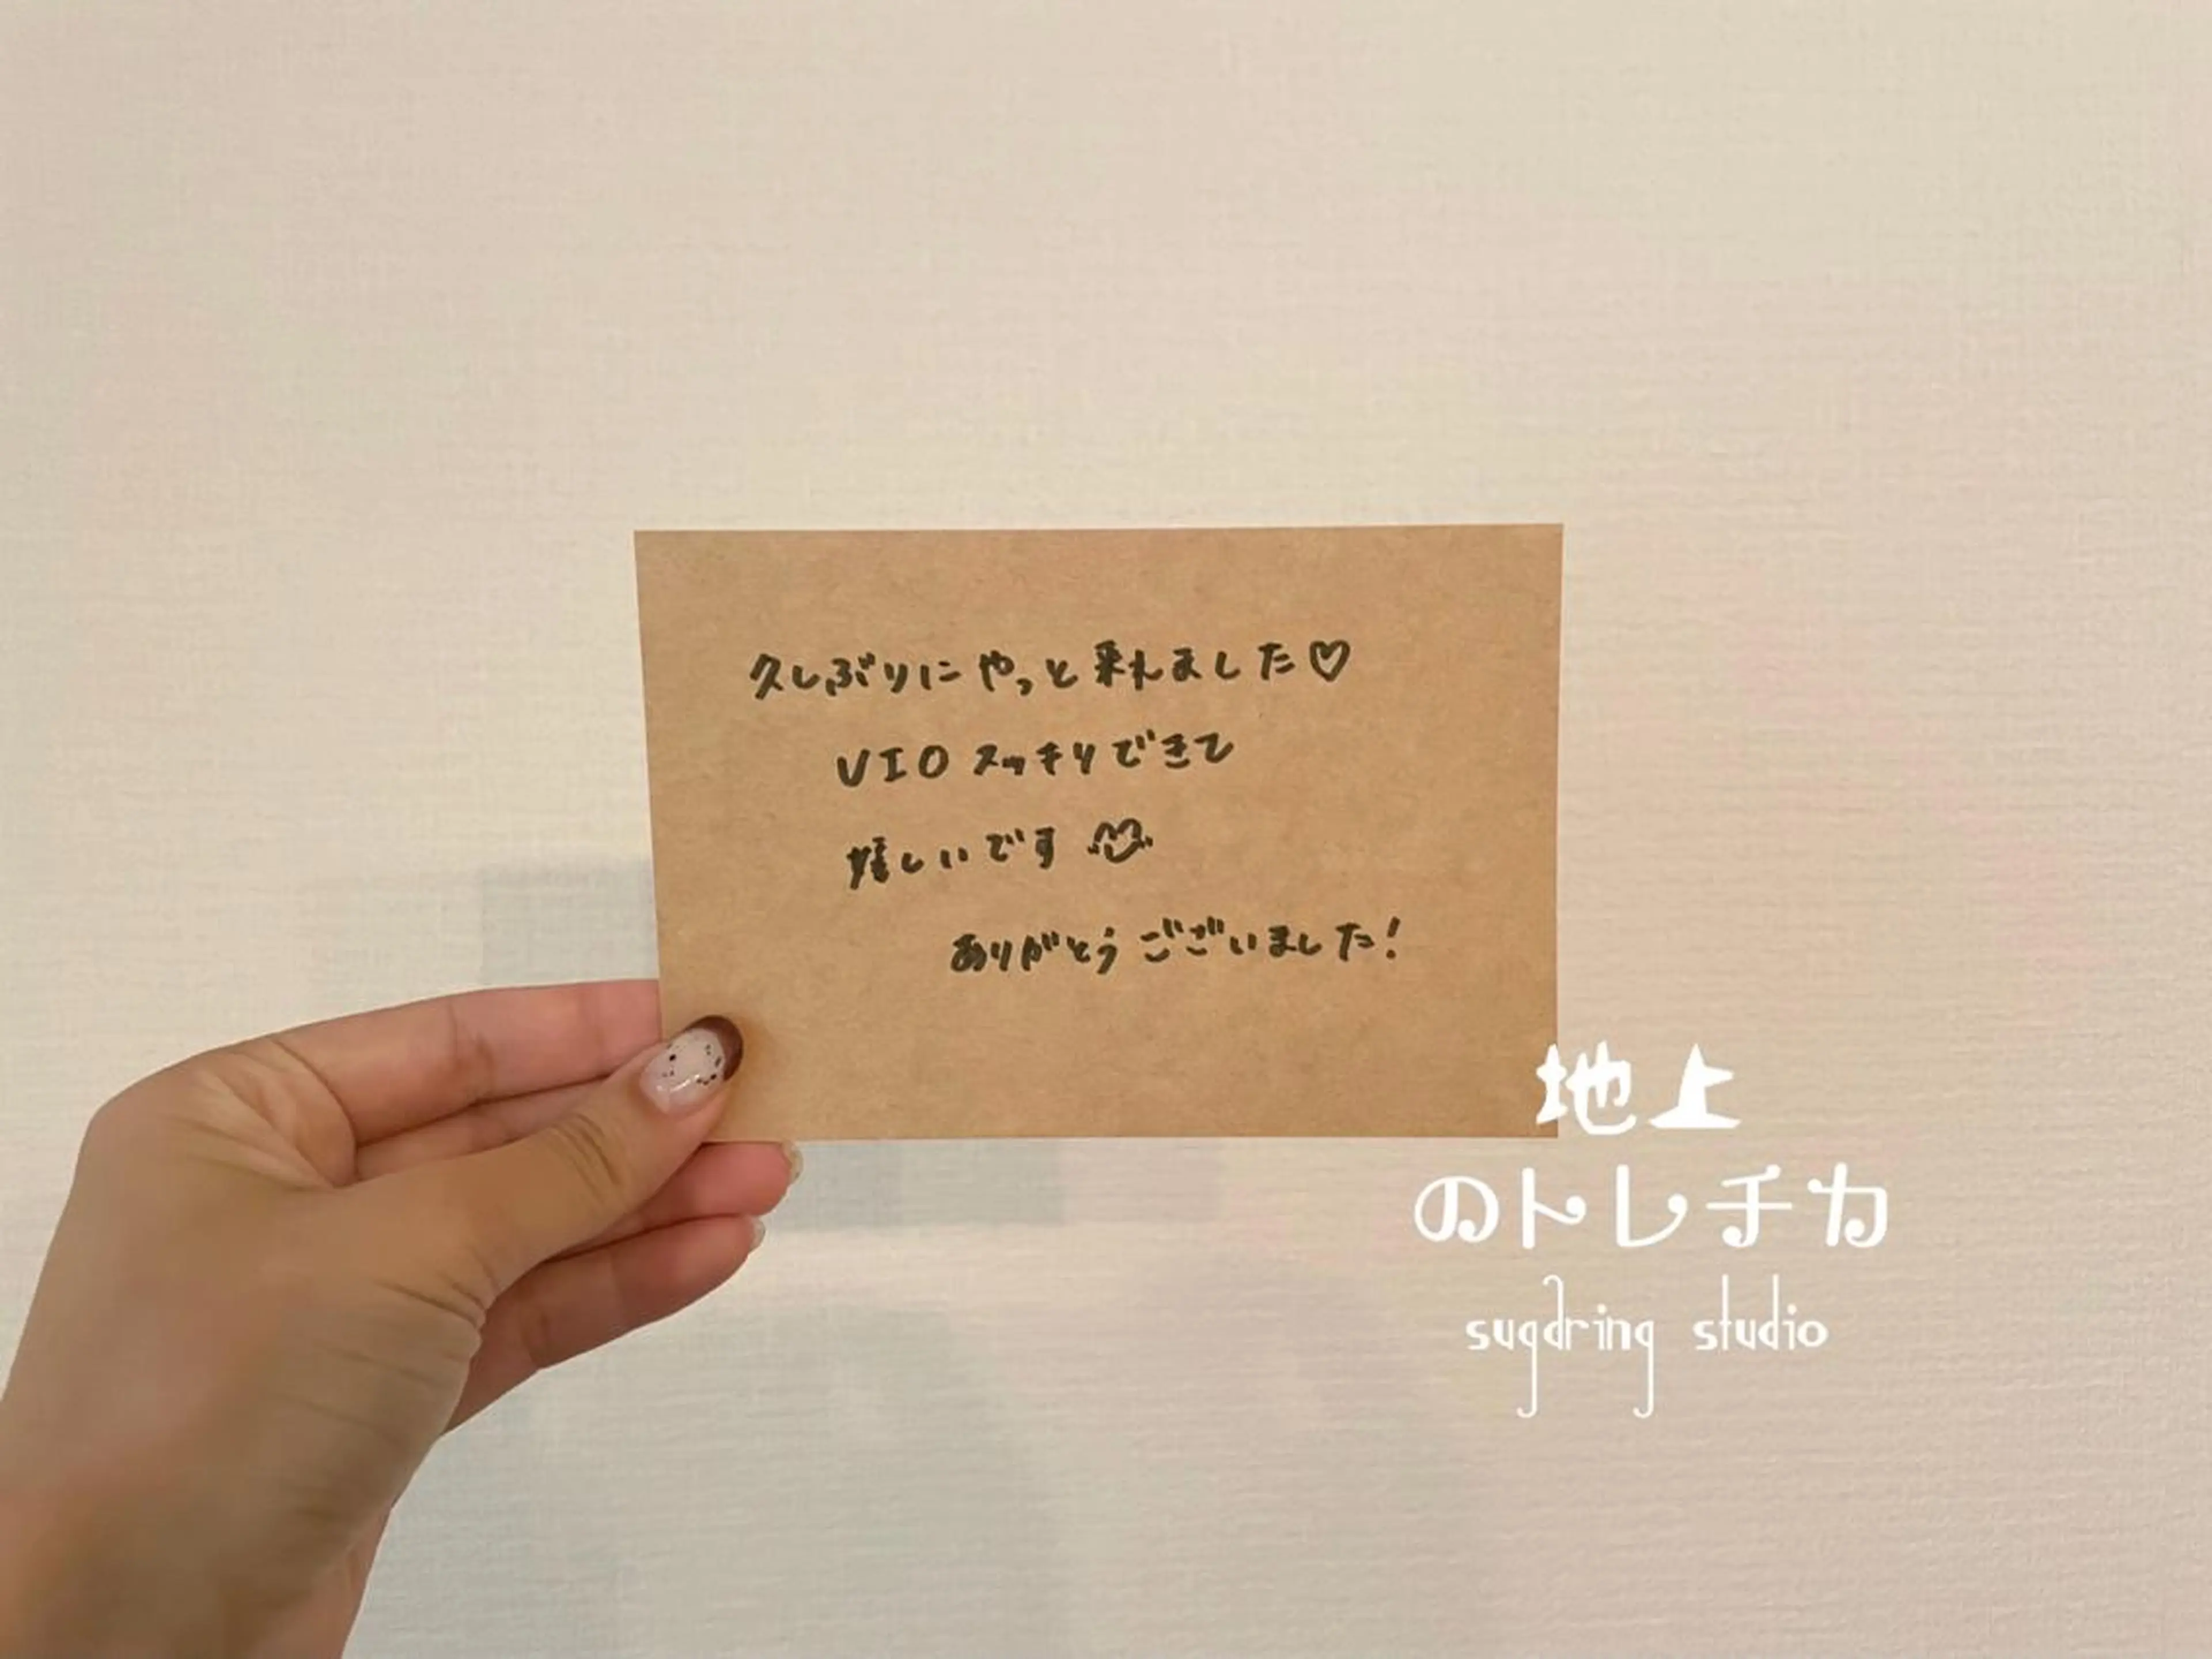 久しぶりにやっと来れました♡
VIOスッキリできて
嬉しいです
ありがとうございました！
地上
のトレチカ
sugaring studio